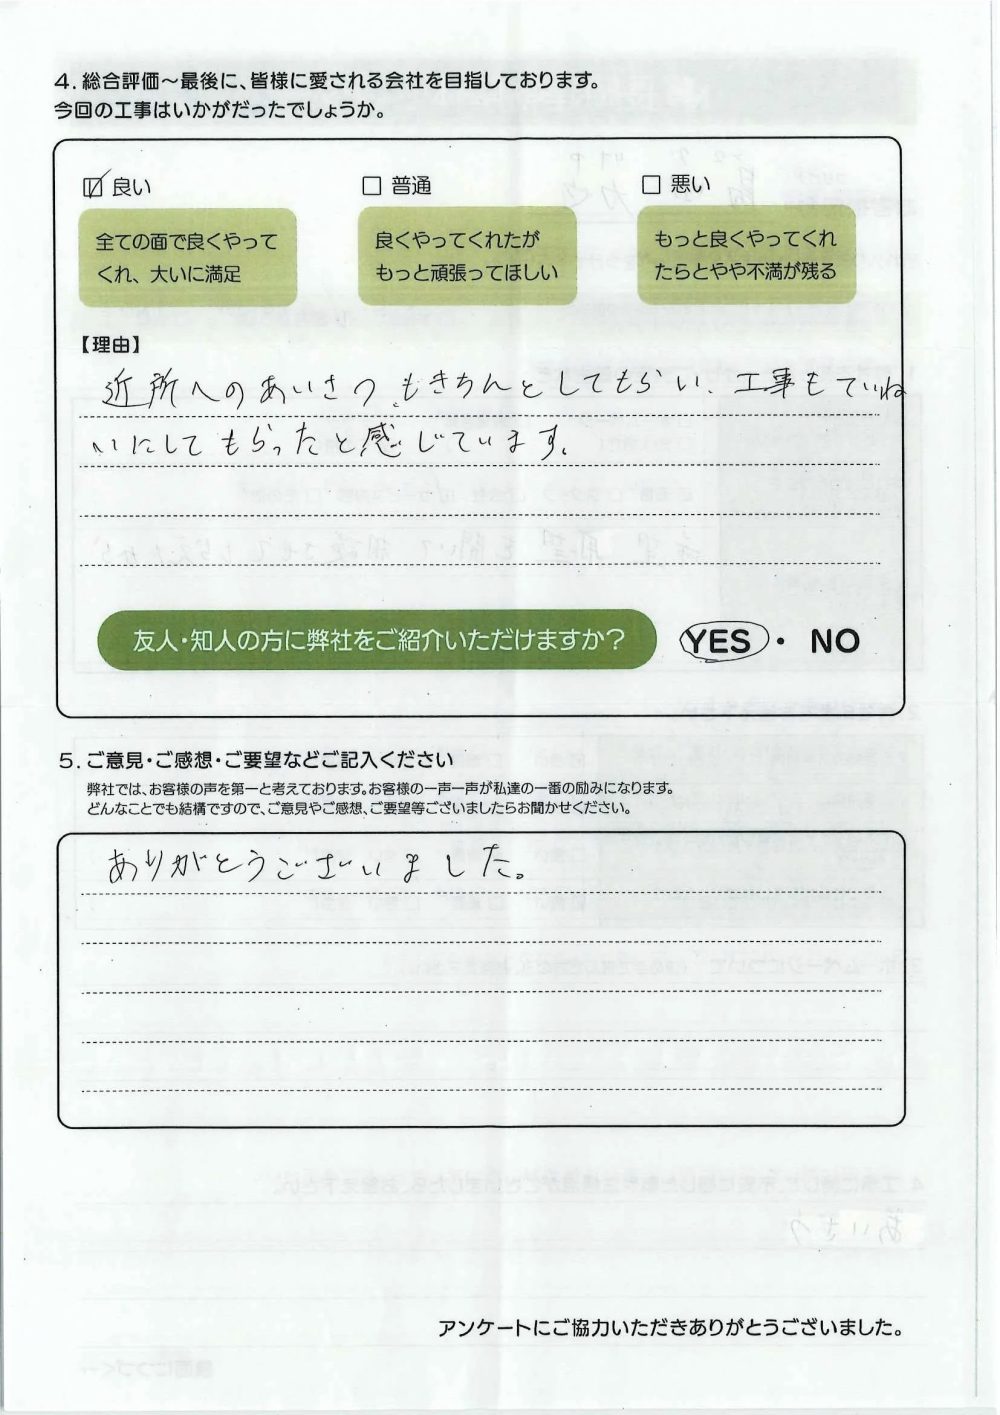 4. 総合評価～最後に、皆様に愛される会社を目指しております。
今回の工事はいかがだったでしょうか。
良い
普通
悪い
全ての面で良くやって
くれ、大いに満足
良くやってくれたが
もっと頑張ってほしい
もっと良くやってくれ
たらとやや不満が残る
【理由】
近所へのあいさつもきちんとしてもらい、工事もていね
いにしてもらったと感じています。
友人・知人の方に弊社をご紹介いただけますか？
YES・NO
5. ご意見・ご感想・ご要望などご記入ください
弊社では、お客様の声を第一と考えております。お客様の一声一声が私達の一番の励みになります。
どんなことでも結構ですので、ご意見やご感想、ご要望等ございましたらお聞かせください。
ありがとうございました。
アンケートにご協力いただきありがとうございました。